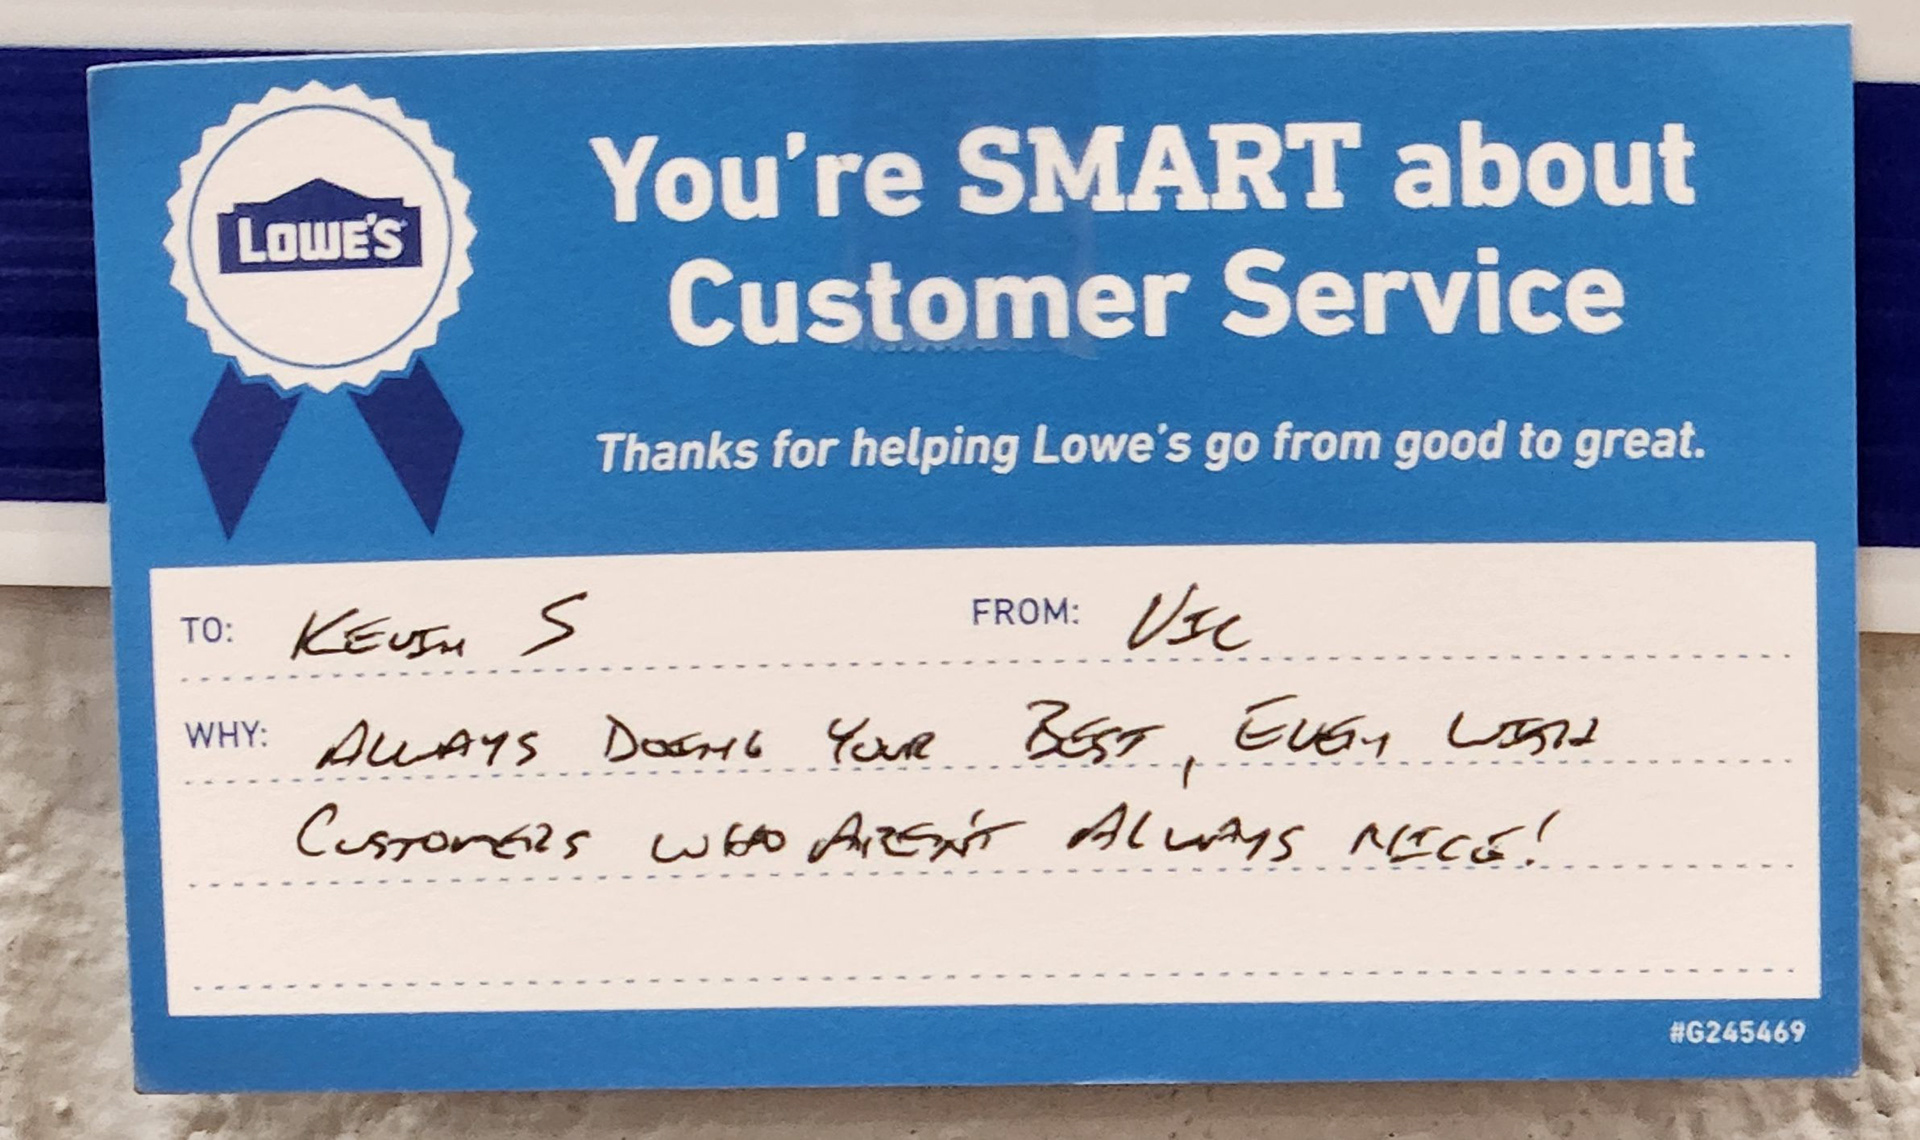 LOWE'S
You're SMART about
Customer Service
Thanks for helping Lowe's go from good to great.
TO: KEVIN S FROM: VIC
WHY: ALWAYS DOING YOUR BEST, EVEN WITH
CUSTOMERS WHO AREN'T ALWAYS NICE!
#G245469